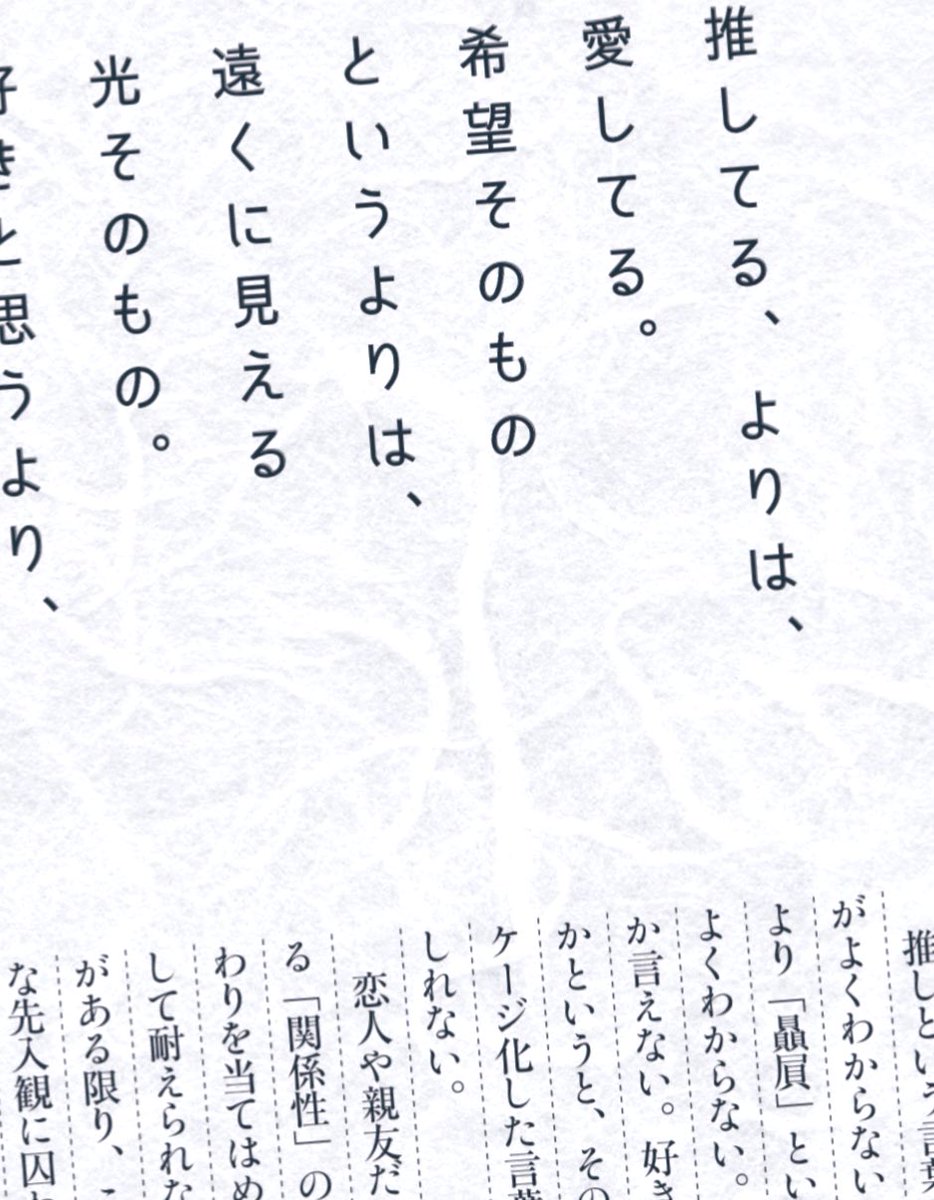 推してる、よりは、
愛してる。
希望そのもの
というよりは、
遠くに見える
光そのもの。
好きと思うより、
推しという言葉
がよくわからない
より「贔屓」とい
よくわからない。
か言えない。好き
かというと、その
ケージ化した言葉
しれない。
恋人や親友だ
る「関係性」の
わりを当てはめ
して耐えられな
がある限り、
な先入観に囚わ